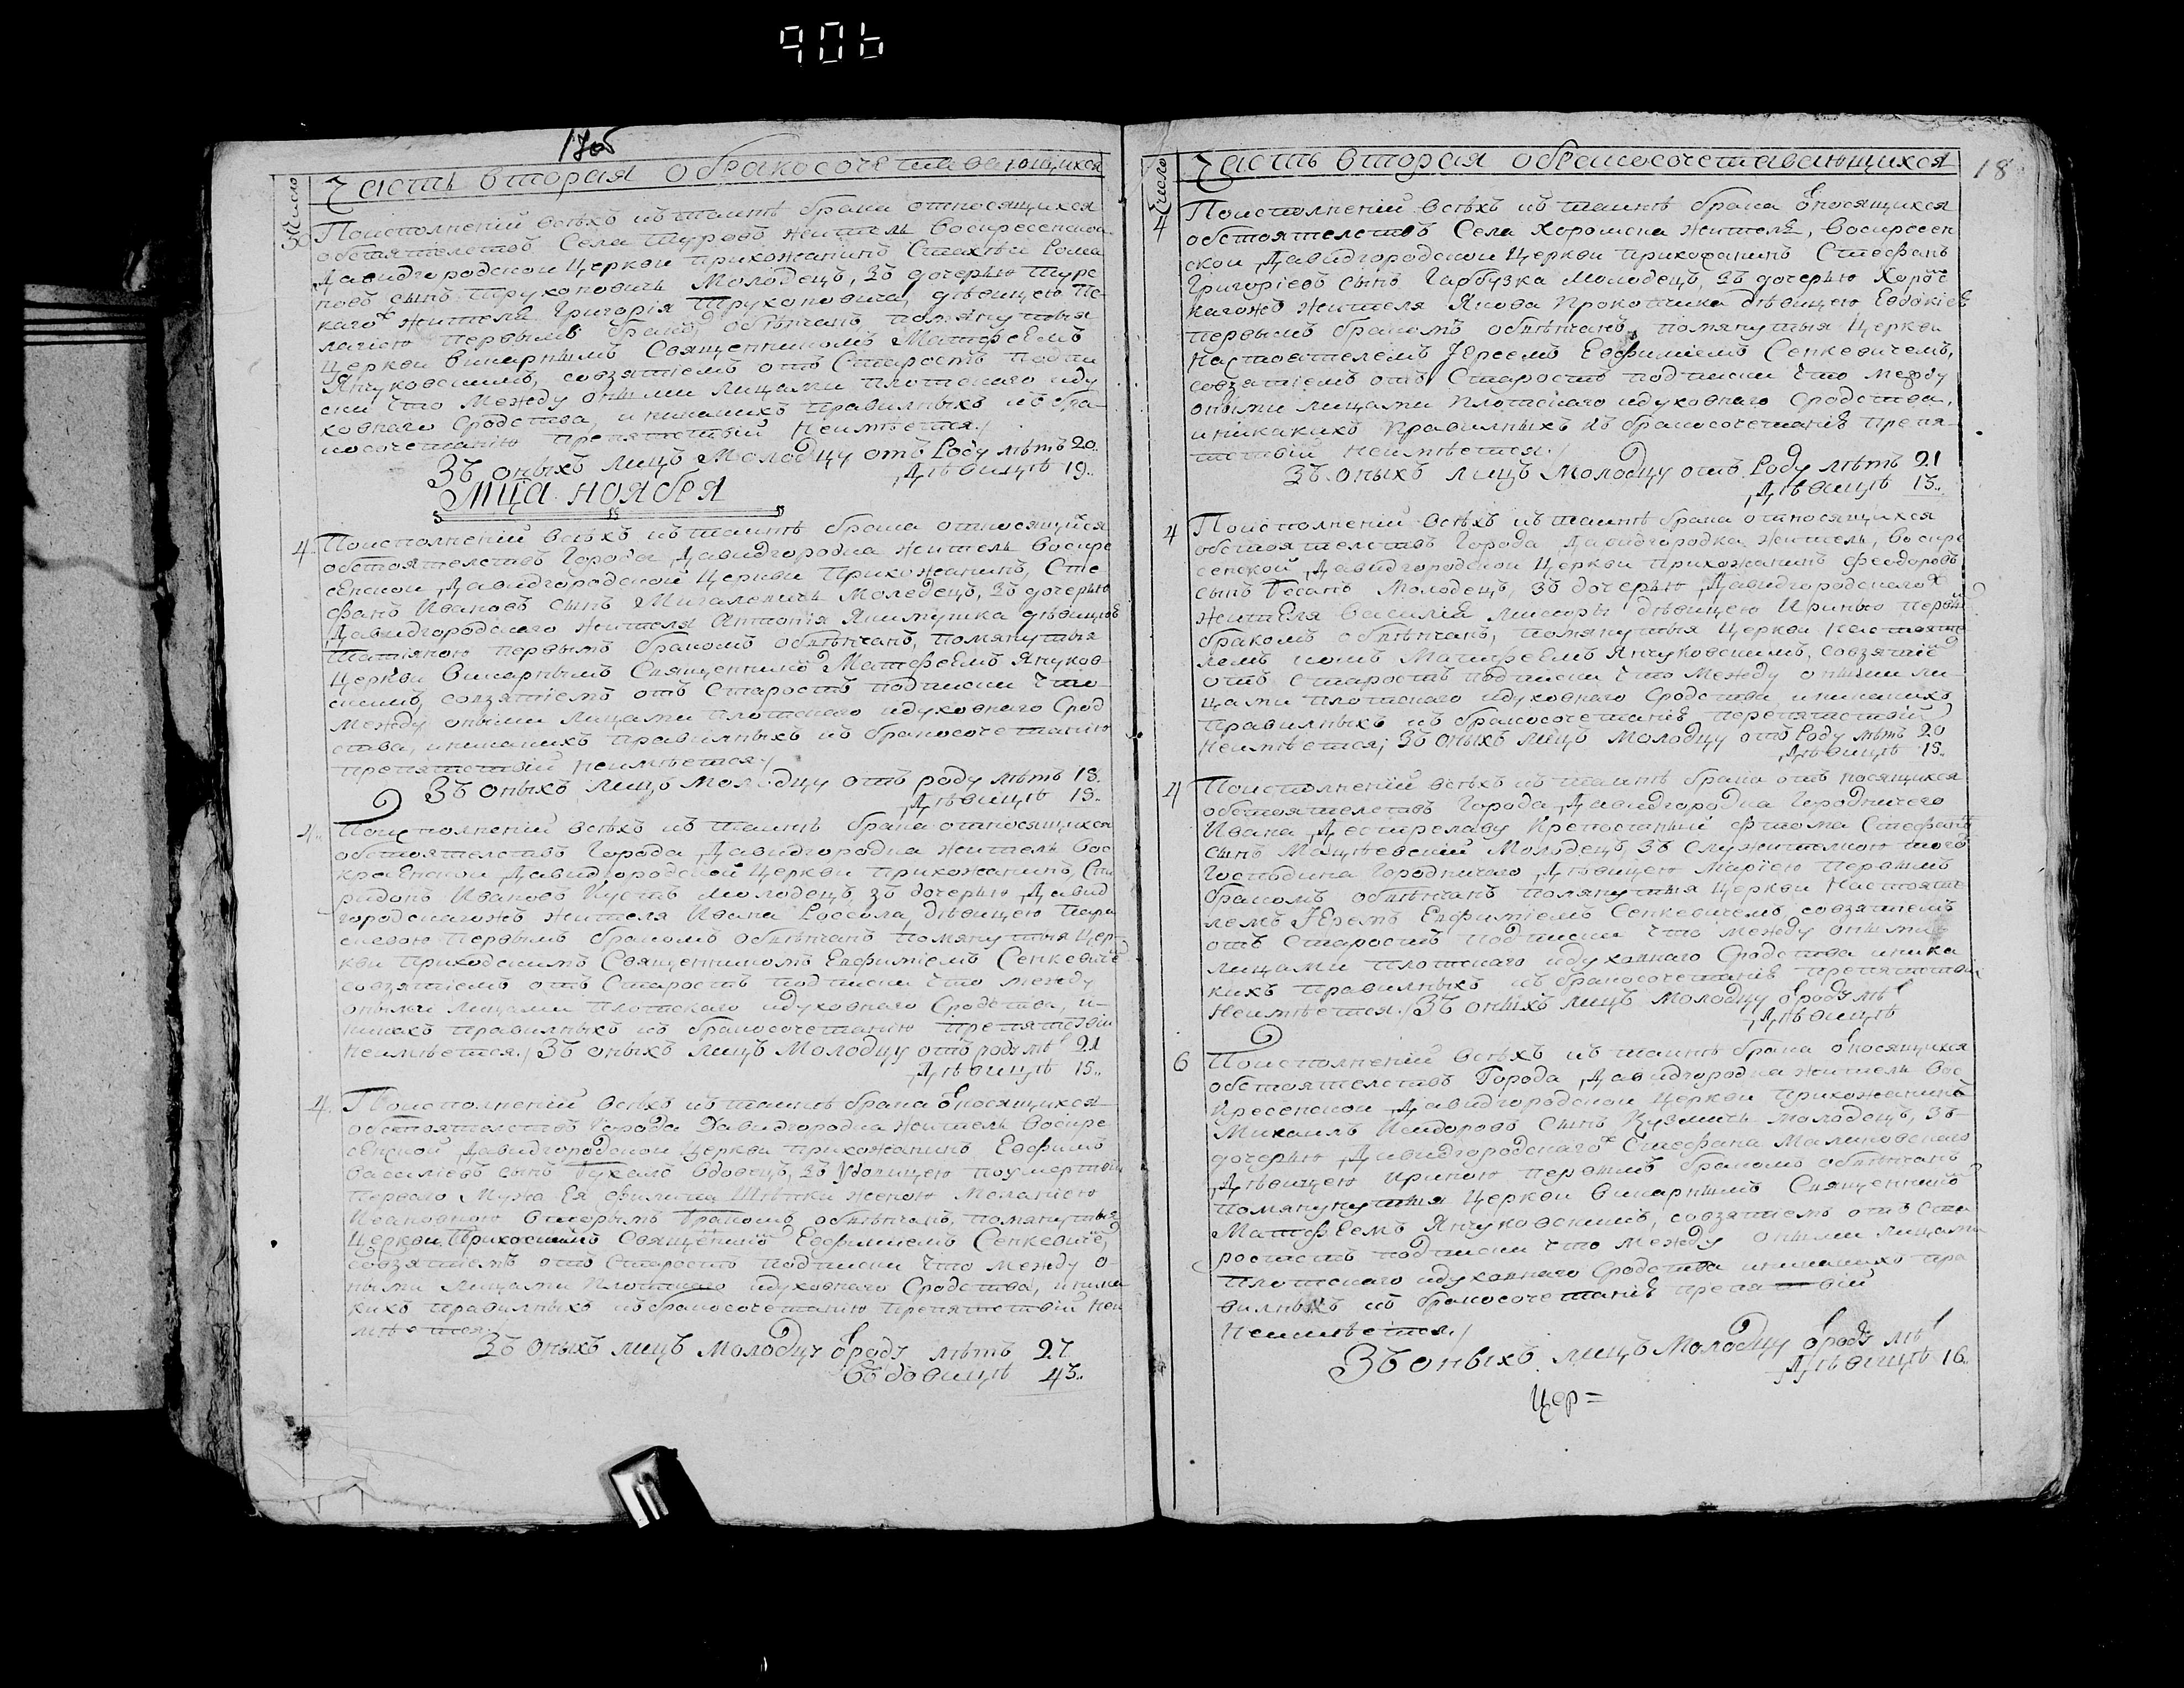 906
17об
Часть вторая обракосочетавающихся
Число
30 Поисполненіи всѣхъ къ таинѣ брака относящихся
обстоятелствъ Села Туровъ житель воскресенской
Давидгородской Церкви прихожанинъ Стахѣи Рома
новъ сынъ Трухоновичь Молодецъ, зъ дочерью Турс
кагож жителя Григорія Трухоновича, дѣвицею Пе-
лагією первымъ бракомъ обвѣнчанъ помянутыя
Церкви викарнымъ Священникомъ Матфеемъ
Янчуковскимъ, совзятіемъ отъ Старостъ подпи
ски что между оными лицами плотскаго иду
ховнаго Сродства, иникакихъ правилныхъ къ бра-
косочетанію препятствій Неимѣется./
Зъ оныхъ лицъ Молодцу отъ Роду лѣтъ 20..
Дѣвицѣ 19..
Мца ноября
4. Поисполненіи всѣхъ къ таинѣ брака относящихся
обстоятелствъ Города Давидгородка житель воскре
сенской Давидгородской Церкви Прихожанинъ, Сте
фанъ Ивановъ сынъ Мигалевичь Молодецъ, зъ дочерью
Давидгородского жителя Антонія Якимчука дѣвицею
Татіяною первымъ бракомъ обвѣнчанъ, помянутыя
Церкви Викарнымъ Священнико Матфеемъ Янчуков
скимъ, совзятіемъ отъ Старостъ подписки что
между оными лицами плотскаго идуховнаго Срод
ства, иникакихъ правилныхъ къ бракосочетанію
препятствій Неимѣется./
Зъ оныхъ лицъ молодцу отъ роду лѣтъ 18.
Дѣвицѣ 15..
4.. Поисполненіи всѣхъ къ таинѣ брака относящихся
обстоятелствъ Города Давидгородка житель вос
кресенской Давидгородской Церкви прихожанинъ, Спи
ридонъ Ивановъ Кусть молодецъ зъ дочерью Давид
городскагожъ жителя Ивана Россола, дѣвицею Пара
скевою первымъ бракомъ обвѣнчанъ помянутыя Цер-
кви приходскимъ Священникомъ Евфиміемъ Сенкевиче
совзятіемъ отъ Старостъ подписки что между
оными лицами плотскаго идуховнаго Сродства, и-
никакъ правилныхъ къ бракосочетанію препятствій
Неимѣется./ Зъ оныхъ лицъ Молодцу отъ роду лѣ 21
Дѣвицѣ 15..
4. Поисполненіи всѣхъ къ таинѣ брака относящихся
обстоятелствъ Города Давидгородка житель воскре
сенской Давидгородской Церкви прихожанинъ Евфимъ
василіевъ сынъ вдовецъ, зъ удовицею поумертвіи
перваго Мужа Ея Филипа женою Меланією
Ивановною вторымъ бракомъ обвѣнчанъ, помянутыя
Церкви Приходскимъ Священнико Евфиміемъ Сенкевиче,
совзятіемъ отъ Старостъ подписки что между о-
ными лицами плотскаго идуховнаго Сродства, иника
кихъ правилныхъ къ бракосочетанію препятствій Неи
мѣется./
Зъ оныхъ лицъ молодцу о роду лѣтъ 27
Въдовицѣ 43..
18
Часть вторая обракосочетавающихся
Число
4 Поисполненіи всѣхъ къ таинѣ брака относящихся
обстоятелствъ Села Хоромска жителя, воскресен
ской Давидгородской Церкви прихожанинъ Стефанъ
Григоріевъ сынъ Гарбузка молодецъ, зъ дочерью Хоромс
кагожъ жителя Якова Прокопчика дѣвицею Евдокіею
первымъ бракомъ обвѣнчанъ, помянутыя Церкви
Настоятелемъ Іереемъ Евфиміемъ Сенкевичемъ,
совзятіемъ отъ Старостъ подписки что между
оными лицами плотскаго идуховнаго Сродства,
иникакихъ правилныхъ къ бракосочетанію препя-
тствій Неимѣется./
Зъ оныхъ лицъ Молодцу отъ Роду лѣтъ 21
Дѣвицѣ 15..
4 Поисполненіи всѣхъ къ таинѣ брака относящихся
обстоятелствъ Города Давидгородка житель, воскре
сенской Давидгородской Церкви прихожанинъ Феодоровъ
сынъ Босанъ молодецъ, зъ дочерью Давидгородскагож
жителя Василія дѣвицею Ириною первы
бракомъ обвѣнчанъ, помянутыя Церкви Настояте
лемъ Матфеемъ Янчуковскимъ, совзятіе
отъ старостъ подписки что между оными ли-
цами плотскаго идуховнаго Сродства иникакихъ
правилныхъ къ бракосочетанію перепятствій
Неимѣется; Зъ оныхъ лицъ Молодцу отъ Роду лѣтъ 20
Дѣвицѣ 15..
4 Поисполненіи всѣхъ къ таинѣ брака относящихся
обстоятелствъ Города Давидгородка Городничего
Ивана Крепостный Фтома Стефанъ
сынъ Мацѣевскій Молодецъ, зъ служителкою того
Господина Городничаго Дѣвицею Марією Первымъ
бракомъ обвѣнчанъ помянутыя Церкви Настояте
лемъ Іереемъ Евфиміемъ Сенкевичемъ совзятіемъ
отъ Старостъ подписки что между оными
лицами плотскаго идуховнаго Сродства иника
кихъ правилныхъ къ бракосочетанію препятствій
Неимѣется./ Зъ оныхъ лицъ молодцу о роду лѣ
Дѣвицѣ
6 Поисполненіи всѣхъ къ таинѣ брака относящихся
обстоятелствъ Города Давидгородка житель Вос
кресенской Давидгородской Церкви прихожанинъ
Михаилъ Исидоровъ Сынъ Кузмичь молодецъ, зъ
дочерью Давидгородскагож Стефана Малиновскаго
Дѣвицею Ириною первымъ бракомъ обвѣнчанъ
помянунутыя Церкви викарнымъ Священнико
Матфеемъ Янчуковскимъ, совзятіемъ отъ Ста
ростъ подписки что между оными лицами
плотскаго идуховнаго Сродства иникакихъ пра
вилныхъ къ бракосочетанію препятствій
Неимѣется./
Зъ оныхъ лицъ Молодцу о роду лѣ
Дѣвицѣ 16..
Цер=